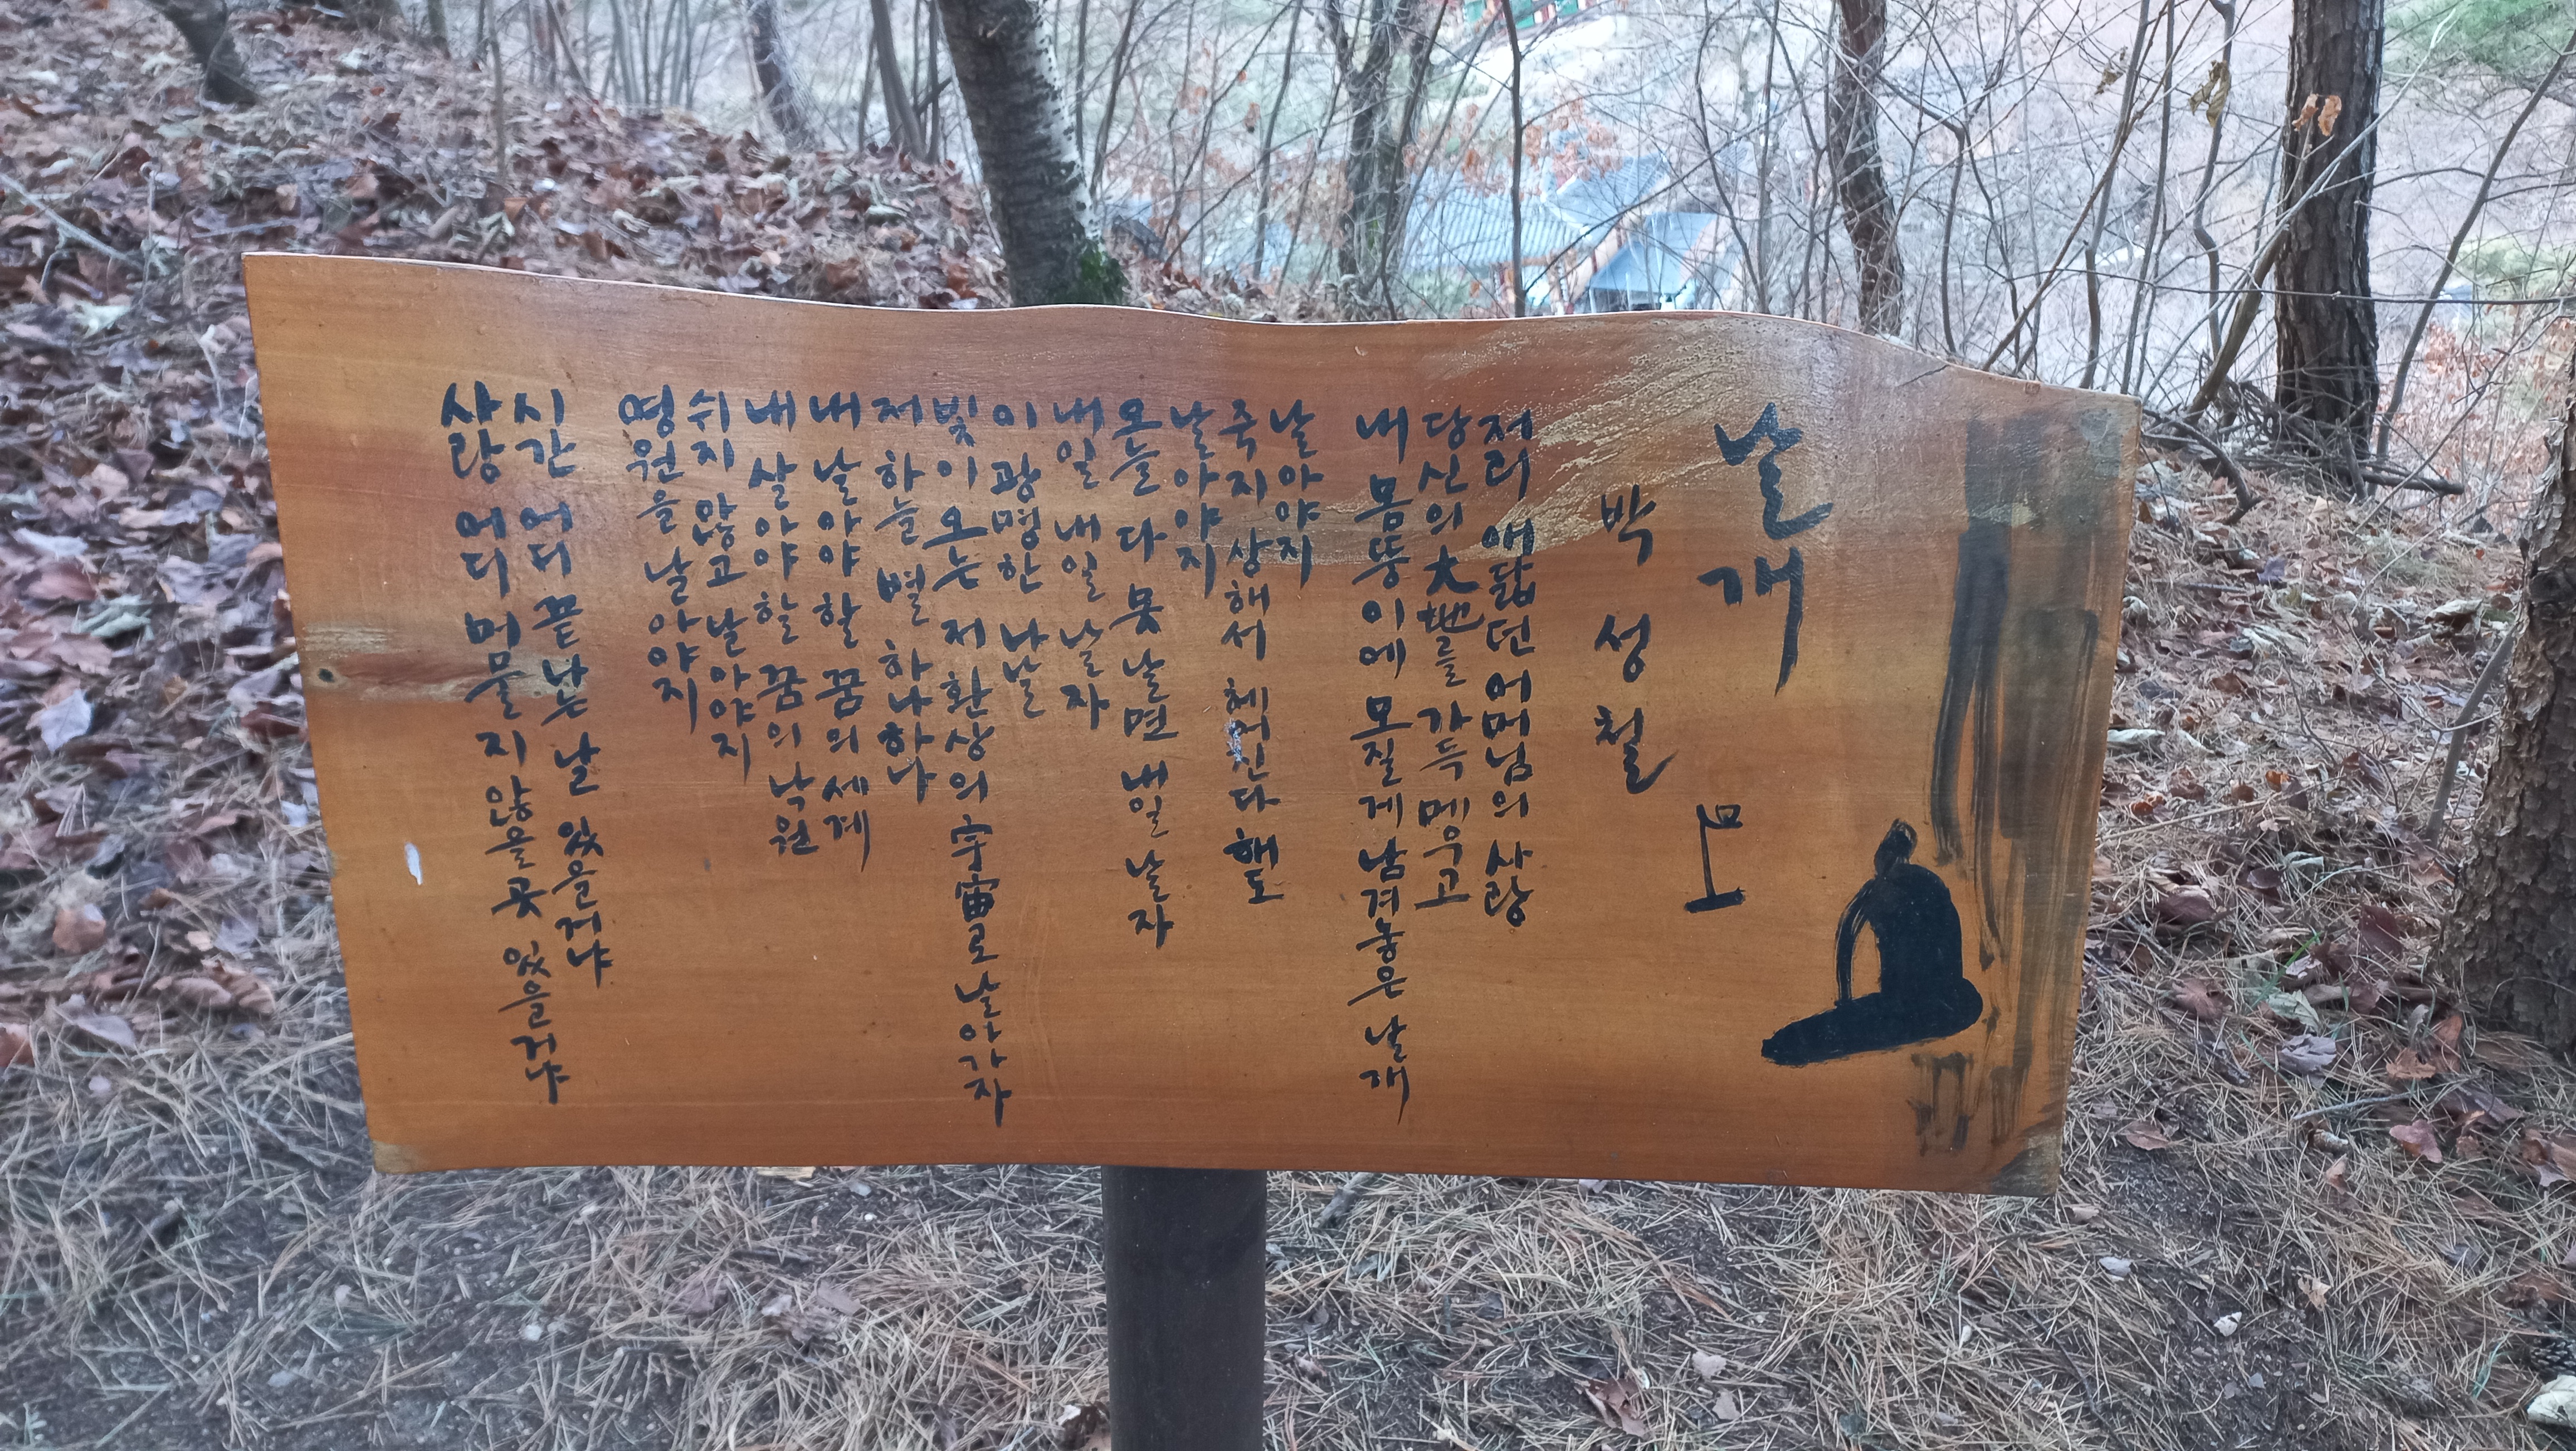 날개
박성철
저리 애닯던 어머님의 사랑
당신의 大地를 가득 메우고
내 몸뚱이에 모질게 남겨놓은 날개
날아야지
죽지 상해서 헤어진다 해도
날아야지
오늘 다 못 날면 내일 날자
내일 내일 날자
이 광명한 나날
빛이 오는 저 환상의 宇宙로 날아가자
저 하늘 별 하나하나
내 날아야 할 꿈의 세계
내 살아야 할 꿈의 낙원
쉬지 않고 날아야지
영원을 날아야지
시간 어디 끝나는 날 있을거냐
사랑 어디 머물지 않을 곳 있을거냐